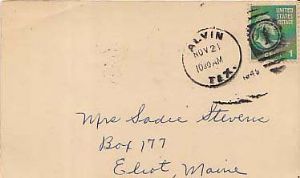 ALVIN
NOV 21
10 30 AM
TEX.
UNITED STATES POSTAGE
1
Mrs Sadie Stevens
Box 177
Eliot, Maine